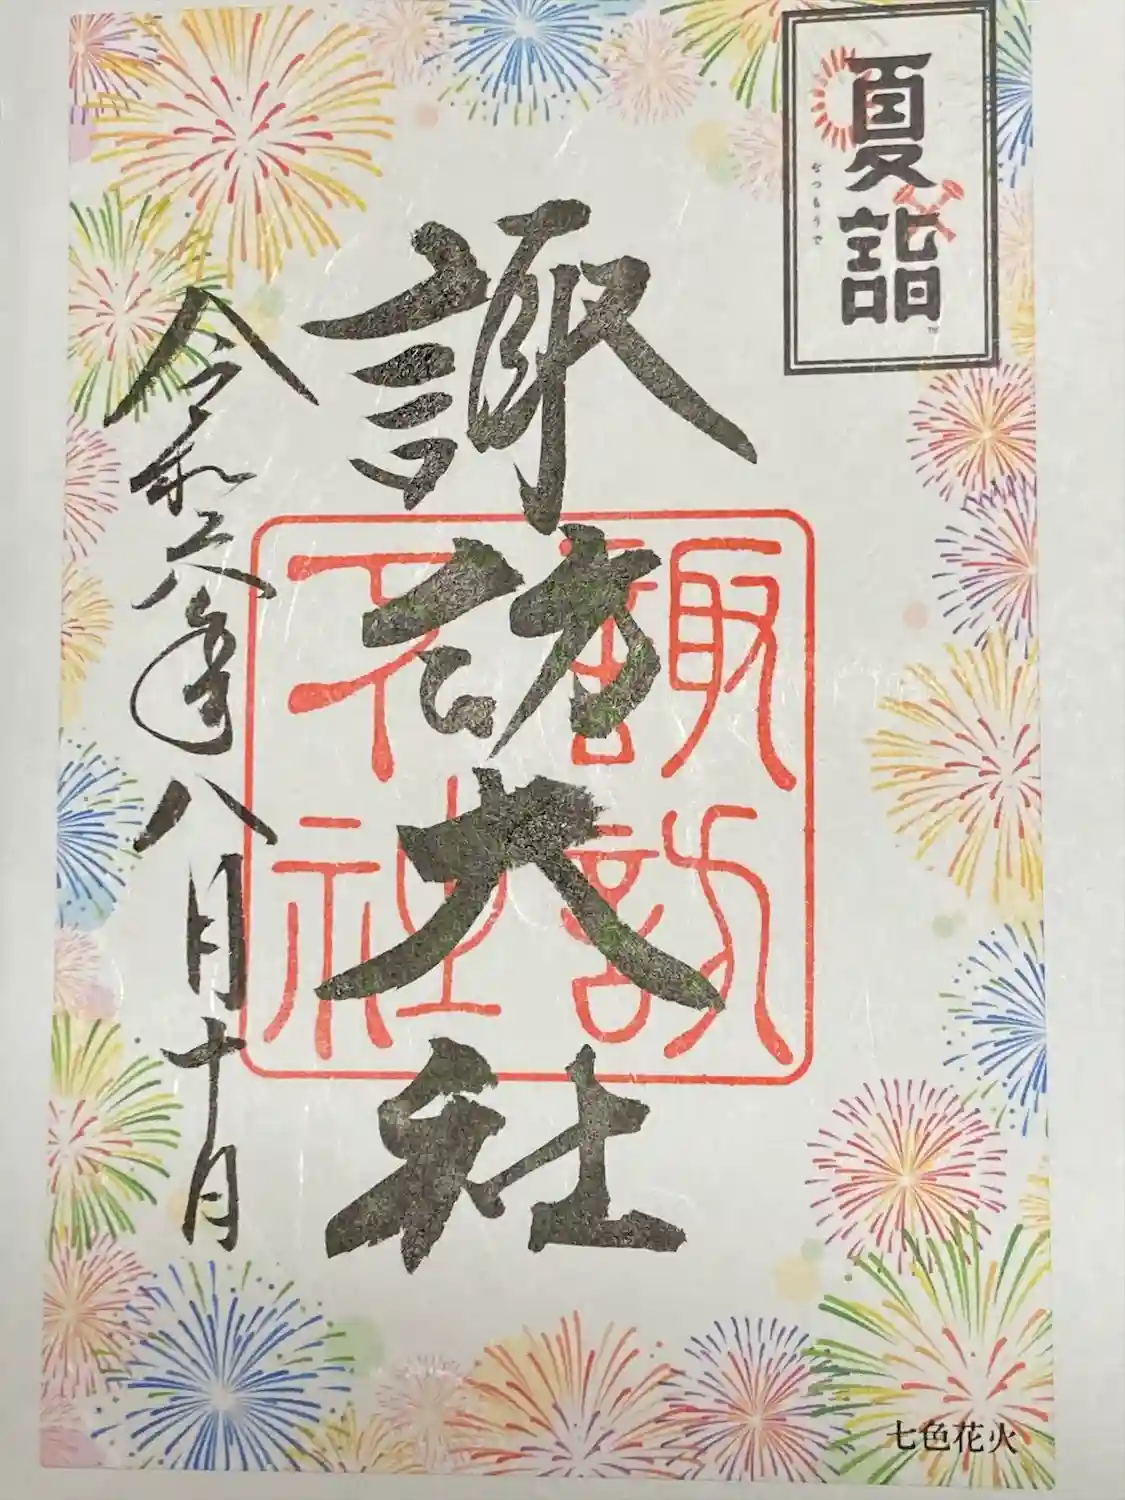 夏詣
なつもうで
™
諏訪大社
諏訪大社
令和六年八月十日
七色花火